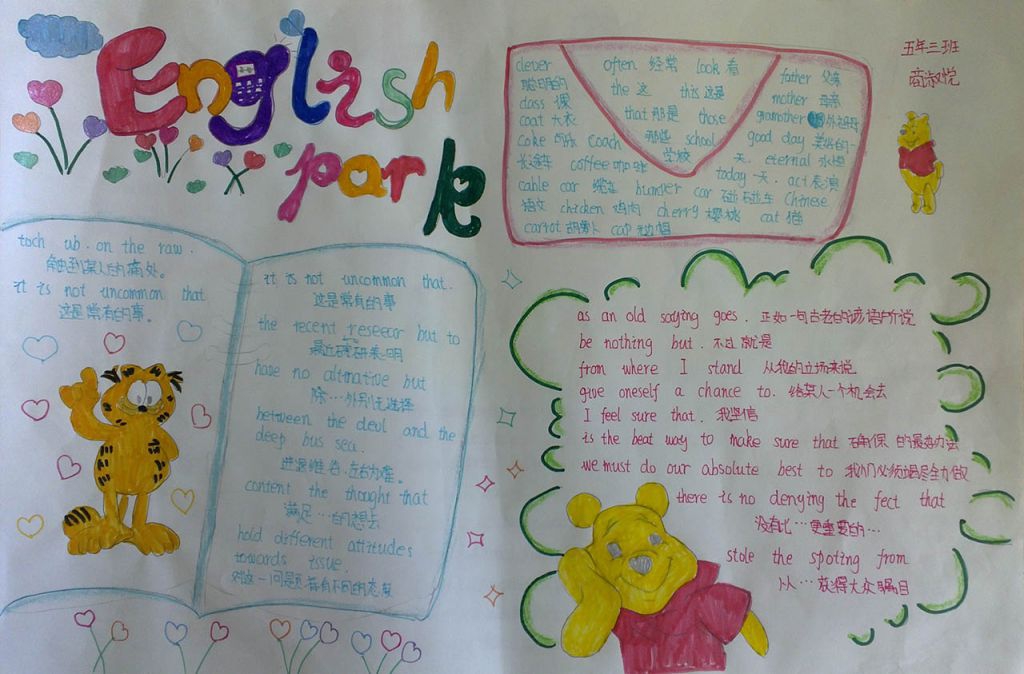 English
park
五年三班
clever often 经常 look 看 father 父亲
聪明的 the 这 this 这是 mother 母亲
class 课 that 那是 those 那些 grandmother 外祖母
coat 大衣 school 学校 good day 美好的一天
coke 可乐 coach 长途车 coffee 咖啡 eternal 永恒
today 今天 act 表演
cable car 缆车 bumper car 碰碰车 Chinese
语文 chicken 鸡肉 cherry 樱桃 cat 猫
carrot 胡萝卜 cap
toch ub. on the raw.
触到某人的痛处。
it is not uncommon that
这是常有的事。
it is not uncommon that.
这是常有的事
the recent reseear but to
最近研表明
have no altrnative but
除…外别无选择
between the devl and the
deep bus sea.
进退维谷.左右为难.
content the thought that
满足…的想去
hold different attitudes
towards issue.
对这一问题有不同的态度
as an old saying goes. 正如一句古老的谚语所说
be nothing but. 不过就是
from where I stand 从我的立场来说
give oneself a chance to. 给某人一个机会去
I feel sure that. 我坚信
is the beat way to make sure that 确保 的最好办法
we must do our absolute best to 我们必须竭尽全力做
there is no denying the fect that
没有比…更重要的…
stole the spoting from
从…获得大众瞩目